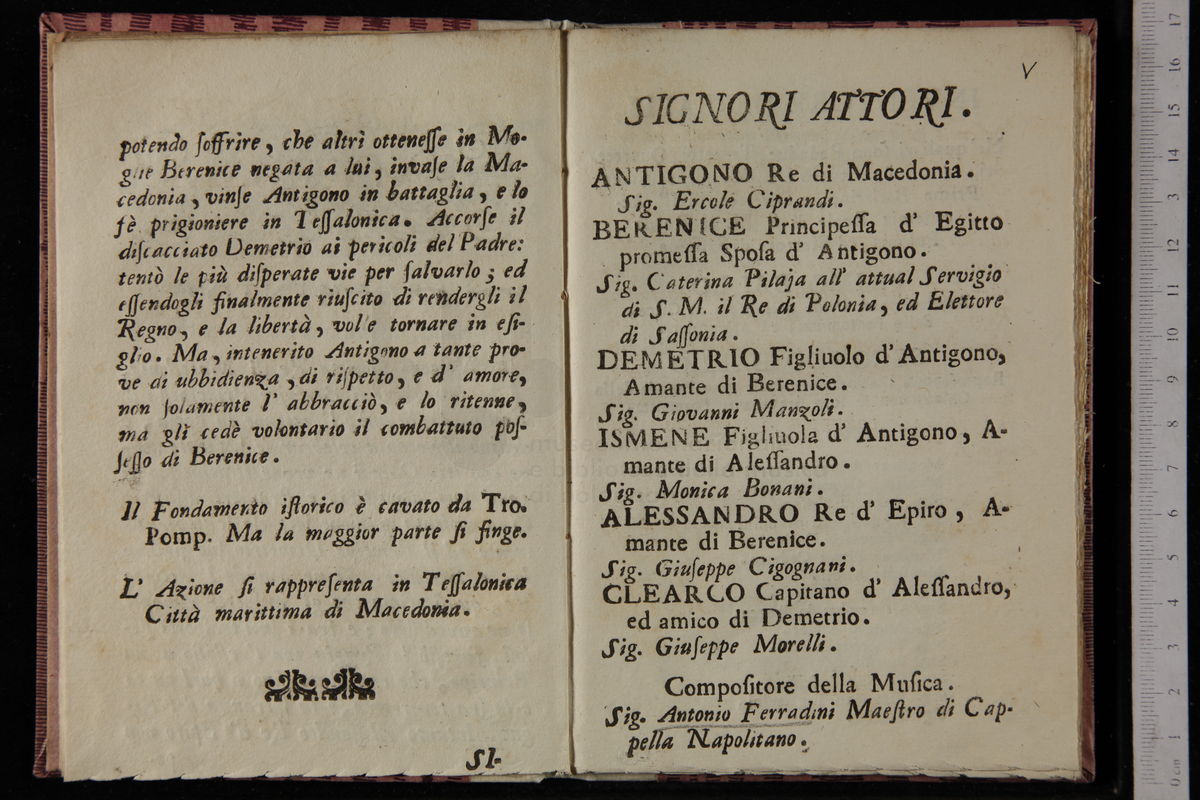 potendo ſoffrire, che altrì otteneſſe in Mo-
glie Berenice negata a lui, invaſe la Ma-
cedonia, vinſe Antigono in battaglia, e lo
fè prigioniere in Teſſalonica. Accorſe il
diſcacciato Demetrio ai pericoli del Padre:
tentò le più diſperate vie per ſalvarlo; ed
eſſendogli finalmente riuſcito di rendergli il
Regno, e la libertà, volle tornare in eſi-
glio. Ma, intenerito Antigono a tante pro-
ve di ubbidienza, di riſpetto, e d' amore,
non ſolamente l' abbracciò, e lo ritenne,
ma gli cedè volontario il combattuto poſ-
ſeſſo di Berenice.
Il Fondamento iſtorico è cavato da Tro.
Pomp. Ma la maggior parte ſi finge.
L' Azione ſi rappreſenta in Teſſalonica
Città marittima di Macedonia.
SI-
V
SIGNORI ATTORI.
ANTIGONO Re di Macedonia.
Sig. Ercole Ciprandi.
BERENICE Principeſſa d' Egitto
promeſſa Spoſa d' Antigono.
Sig. Caterina Pilaja all' attual Servigio
di S. M. il Re di Polonia, ed Elettore
di Saſſonia.
DEMETRIO Figliuolo d' Antigono,
Amante di Berenice.
Sig. Giovanni Manzoli.
ISMENE Figliuola d' Antigono, A-
mante di Aleſſandro.
Sig. Monica Bonani.
ALESSANDRO Re d' Epiro, A-
mante di Berenice.
Sig. Giuſeppe Cigognani.
CLEARCO Capitano d' Aleſſandro,
ed amico di Demetrio.
Sig. Giuſeppe Morelli.
Compoſitore della Muſica.
Sig. Antonio Ferradini Maeſtro di Cap-
pella Napolitano.
0 cm 1 2 3 4 5 6 7 8 9 10 11 12 13 14 15 16 17